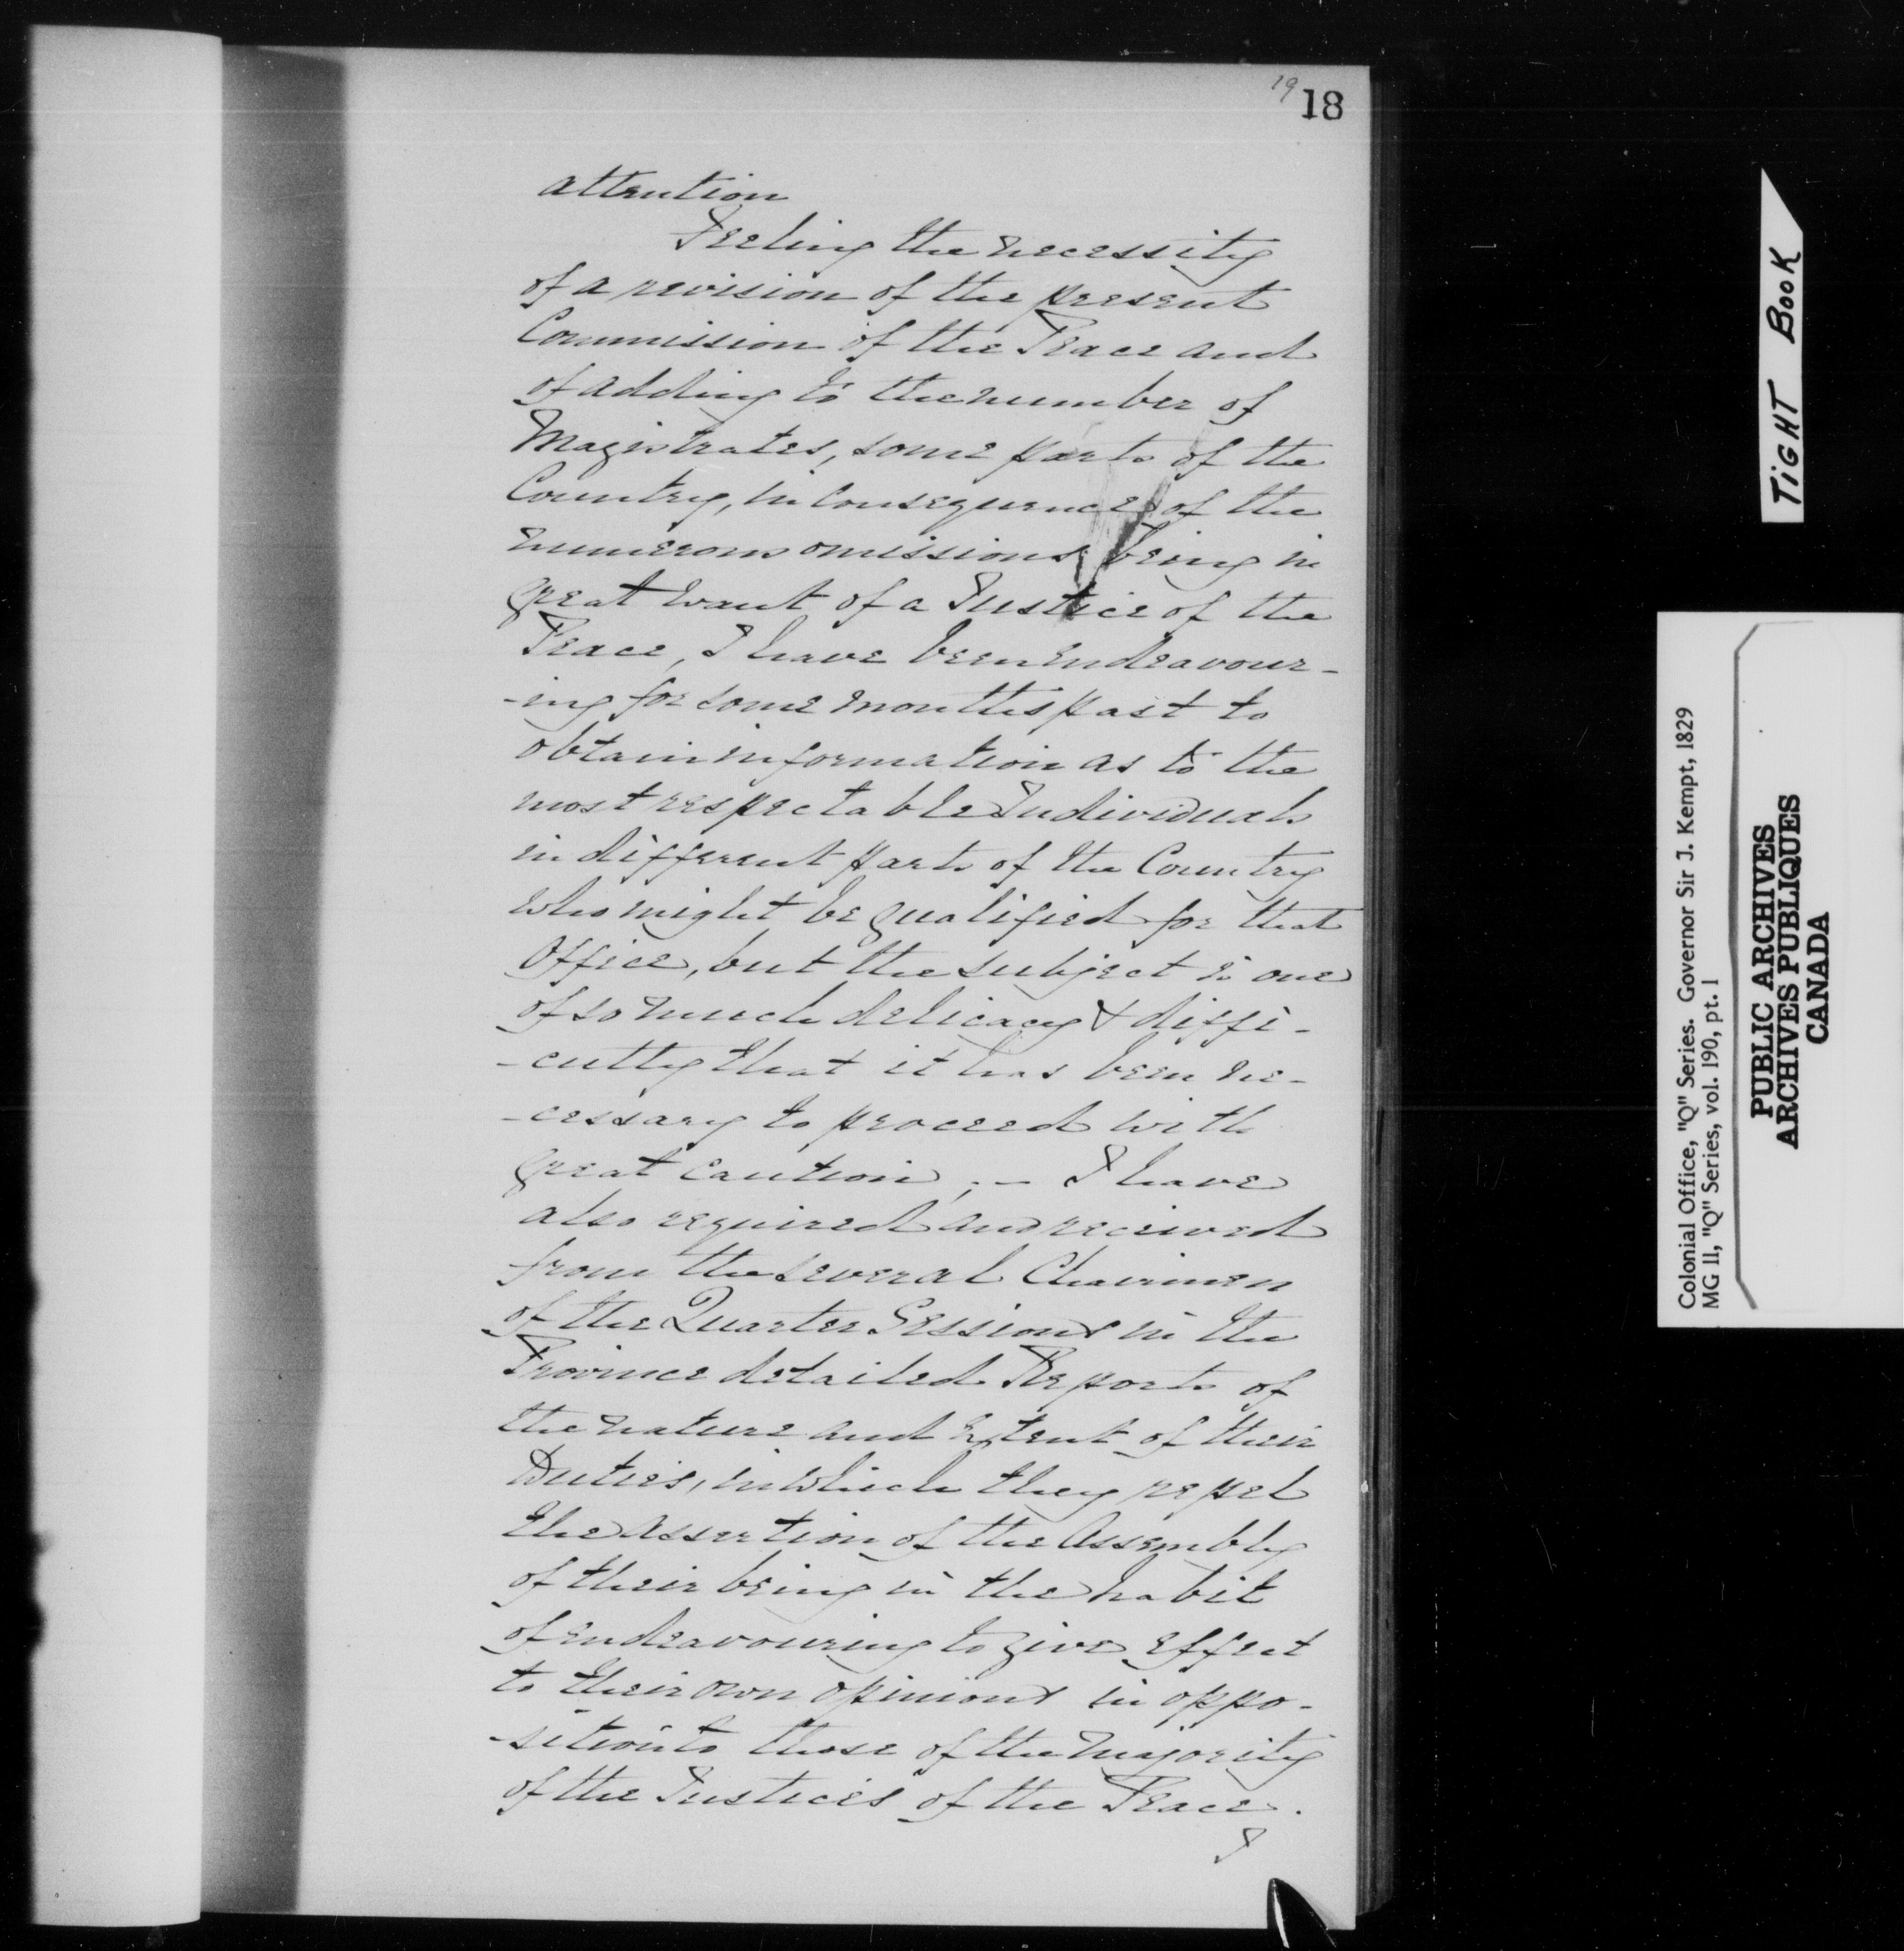 19
18
attention
Feeling the necessity
of a revision of the present
Commission of the Peace and
of adding to the number of
Magistrates, some parts of the
Country, in consequence of the
numerous omissions being in
great want of a Justice of the
Peace, I have been endeavour-
-ing for some months past to
obtain information as to the
most respectable Individuals
in different parts of the Country
who might be qualified for that
Office, but the subject is one
of so much delicacy & diffi-
-culty that it has been ne-
-cessary to proceed with
great caution, :— I have
also required and received
from the several Chairmen
of the Quarter Sessions in the
Province detailed Reports of
the nature and extent of their
Duties, in which they repel
the assertion of the Assembly
of their being in the habit
of endeavouring to give effect
to their own opinions in oppo-
-sition to those of the majority
of the Justices of the Peace.
I
TIGHT BOOK
Colonial Office, "Q" Series. Governor Sir J. Kempt, 1829
MG 11, "Q" Series, vol. 190, pt. 1
PUBLIC ARCHIVES
ARCHIVES PUBLIQUES
CANADA